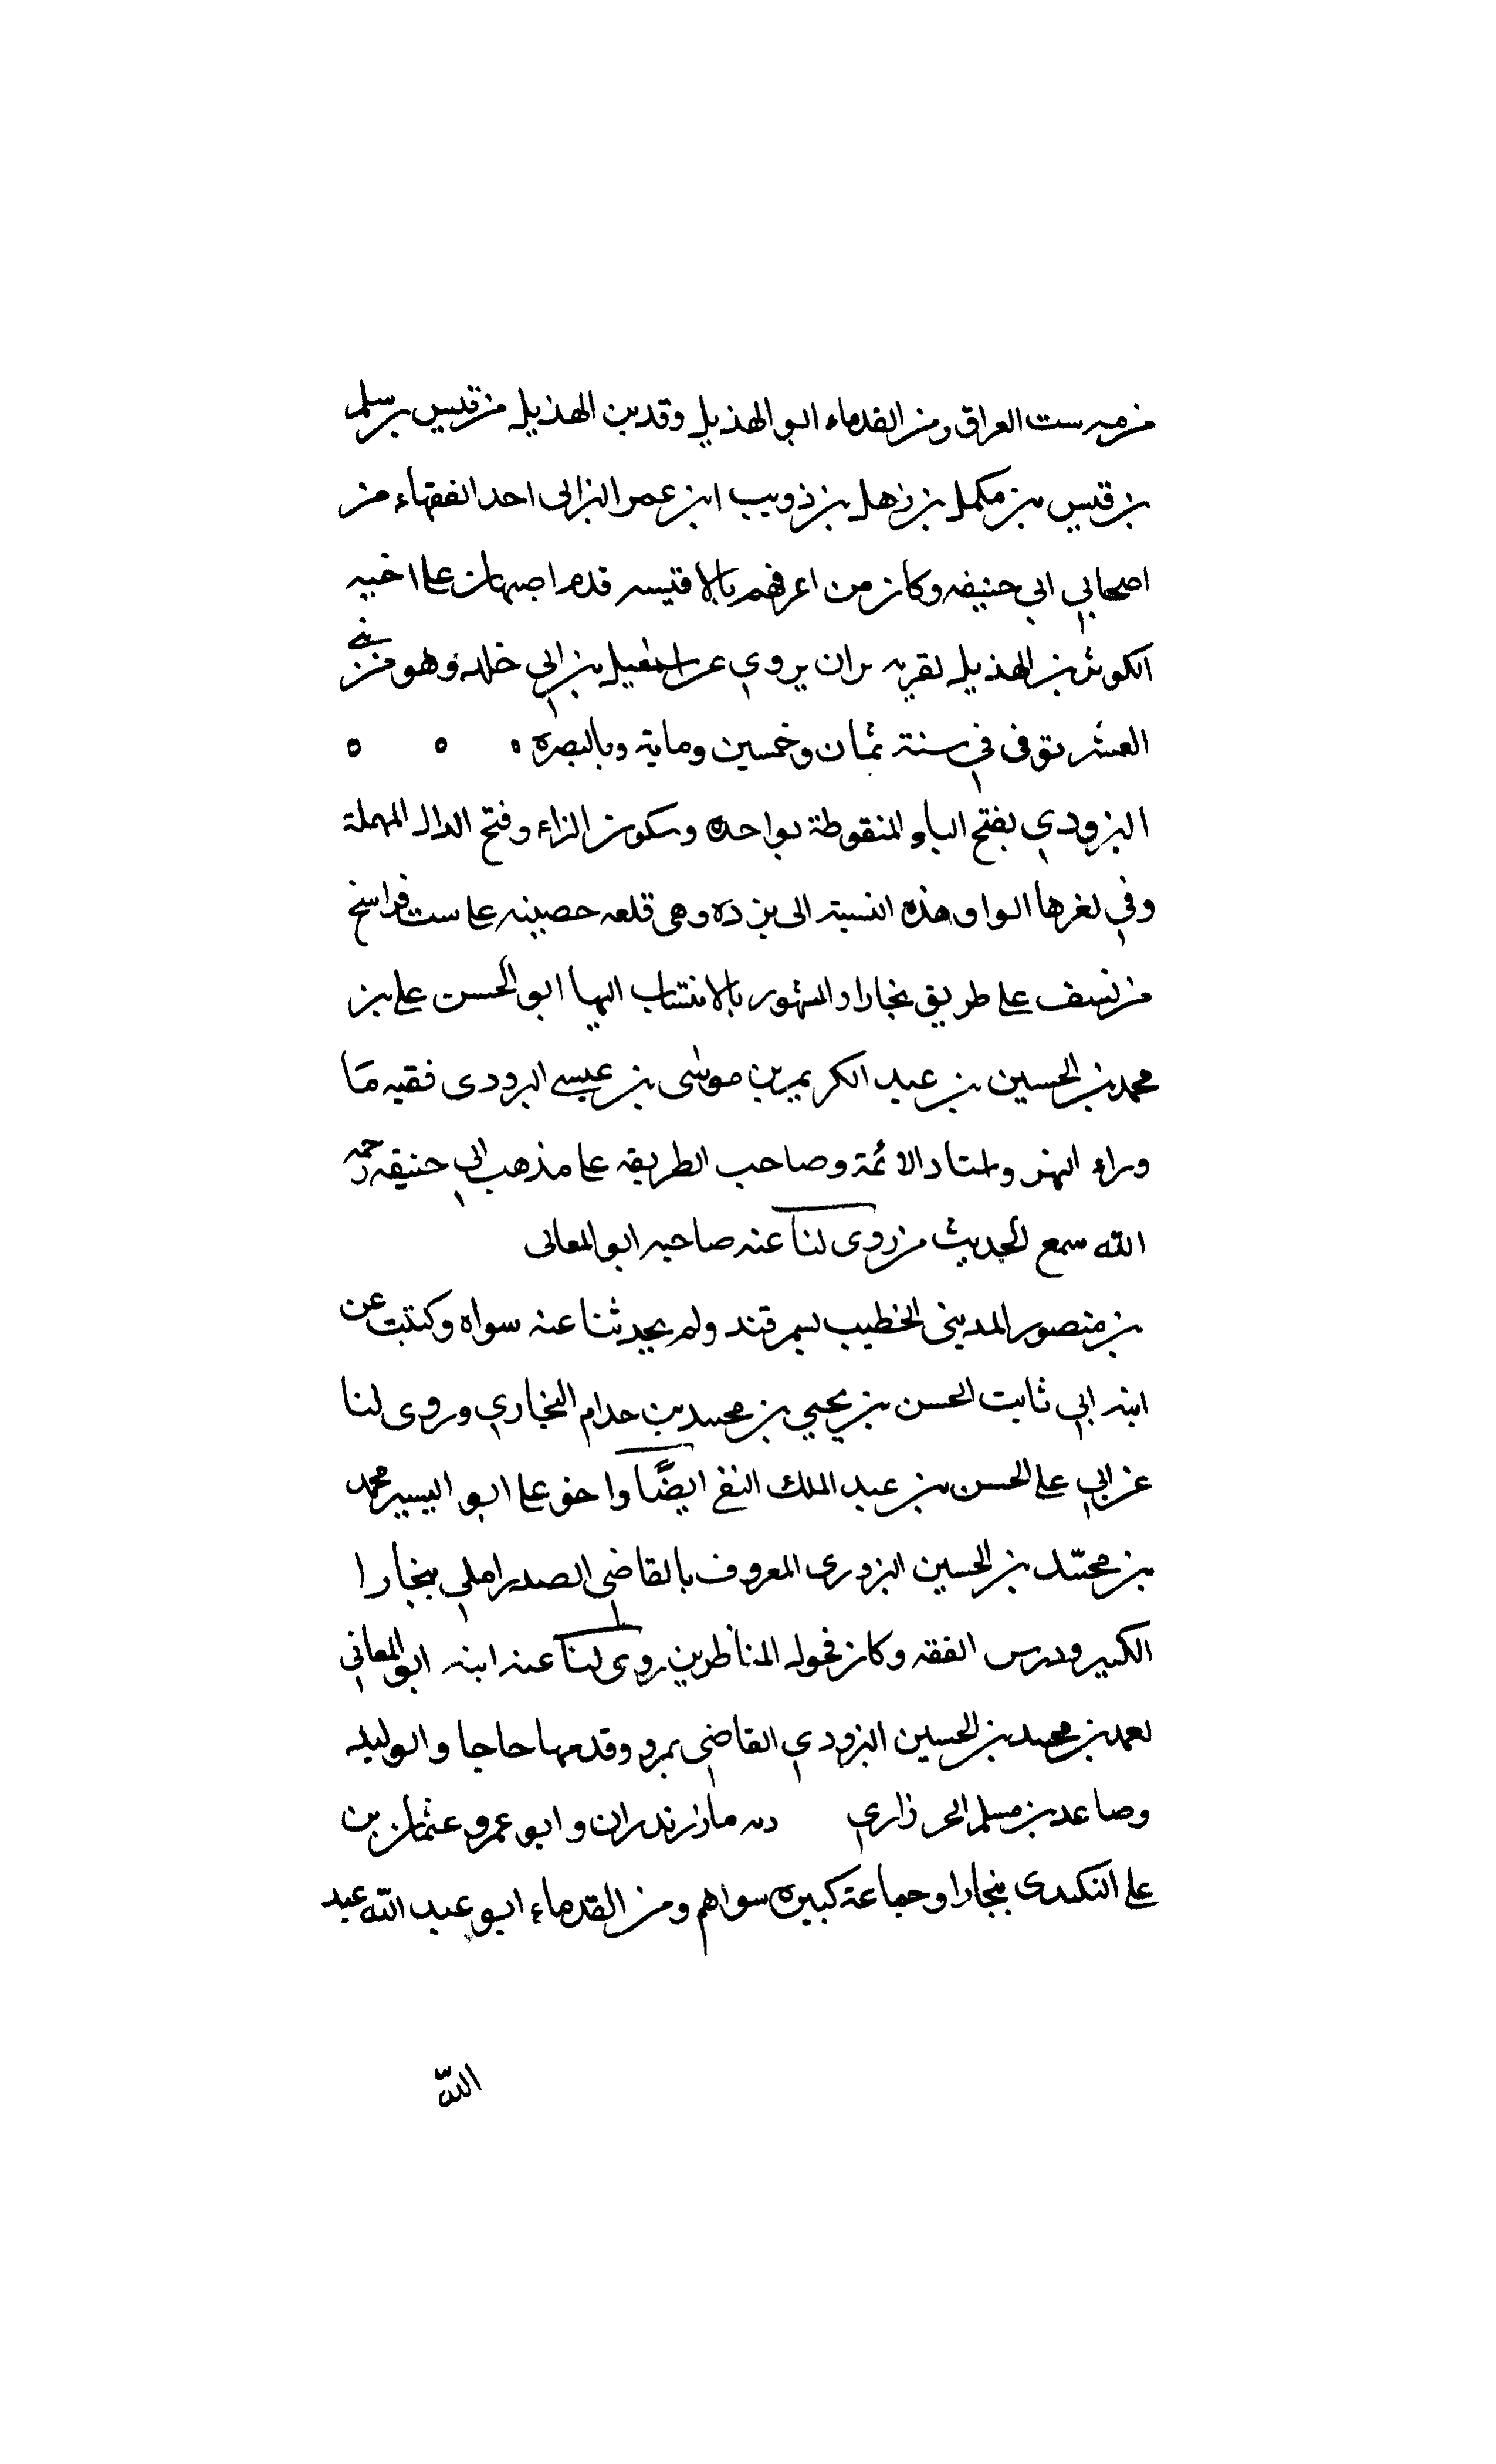 من مدرست العراق ومن القدماء ابو الهذيل وقدبن الهذيل من قيس بن سلم
بن قيس بن مكمل بن ذهل بن ذويب ابن عمر البزانى احد الفقهاء من
اصحاب ابي حنيفه وكان من اعرفهم بالاقتيسه قدم اصبهان على اخيه
الكوثر بن الهذيل بقريه بران يروي عن اسمعيل بن ابي خلد وهو من بني
العشر توفى في سنة ثمان وخمسين وماية وبالبصره
البزودي بفتح الباء المنقوطة بواحده وسكون الزاء وفتح الدال المهملة
وفي اخرها الواو هذه النسبة الى بزده وهى قلعه حصينه على ست فراسخ
من نسف على طريق بخارا والمشهور بالانتساب اليها ابو الحسن على بن
محمد بن الحسين بن عبد الكريم بن موسى بن عيسى البزدوى فقيه مَا
وراء النهر واستاد الائمة وصاحب الطريقه على مذهب ابي حنيفه رحمه
الله سمع الحديث من روى لنا عنه صاحبه ابو المعالى
بن منصور المدينى الخطيب بسمرقند ولم يحدثنا عنه سواه وكتبت عن
ابنه ابي ثابت الحسن بن يحيي بن محمد بن حدام البخاري وروى لنا
عن ابي على الحسن بن عبد الملك النفى ايضًا واخو على ابو اليسير محمد
بن محمّد بن الحسين البزدوى المعروف بالقاضي الصدر املي ببخارا
الكبير ودرس الفقه وكان فحول المناظرين روى لنا عنه ابنه ابو المعاني
احمد بن محمد بن الحسين البزودي القاضي بمرو وقدمها حاجا وابو ليد
وصاعد بن مسلم الحرزاري دله مازندران وابو عمرو عثمان بن
على النكندى ببخارا وجماعة كبيره سواهم ومن القدماء ابو عبد الله عبد
الله